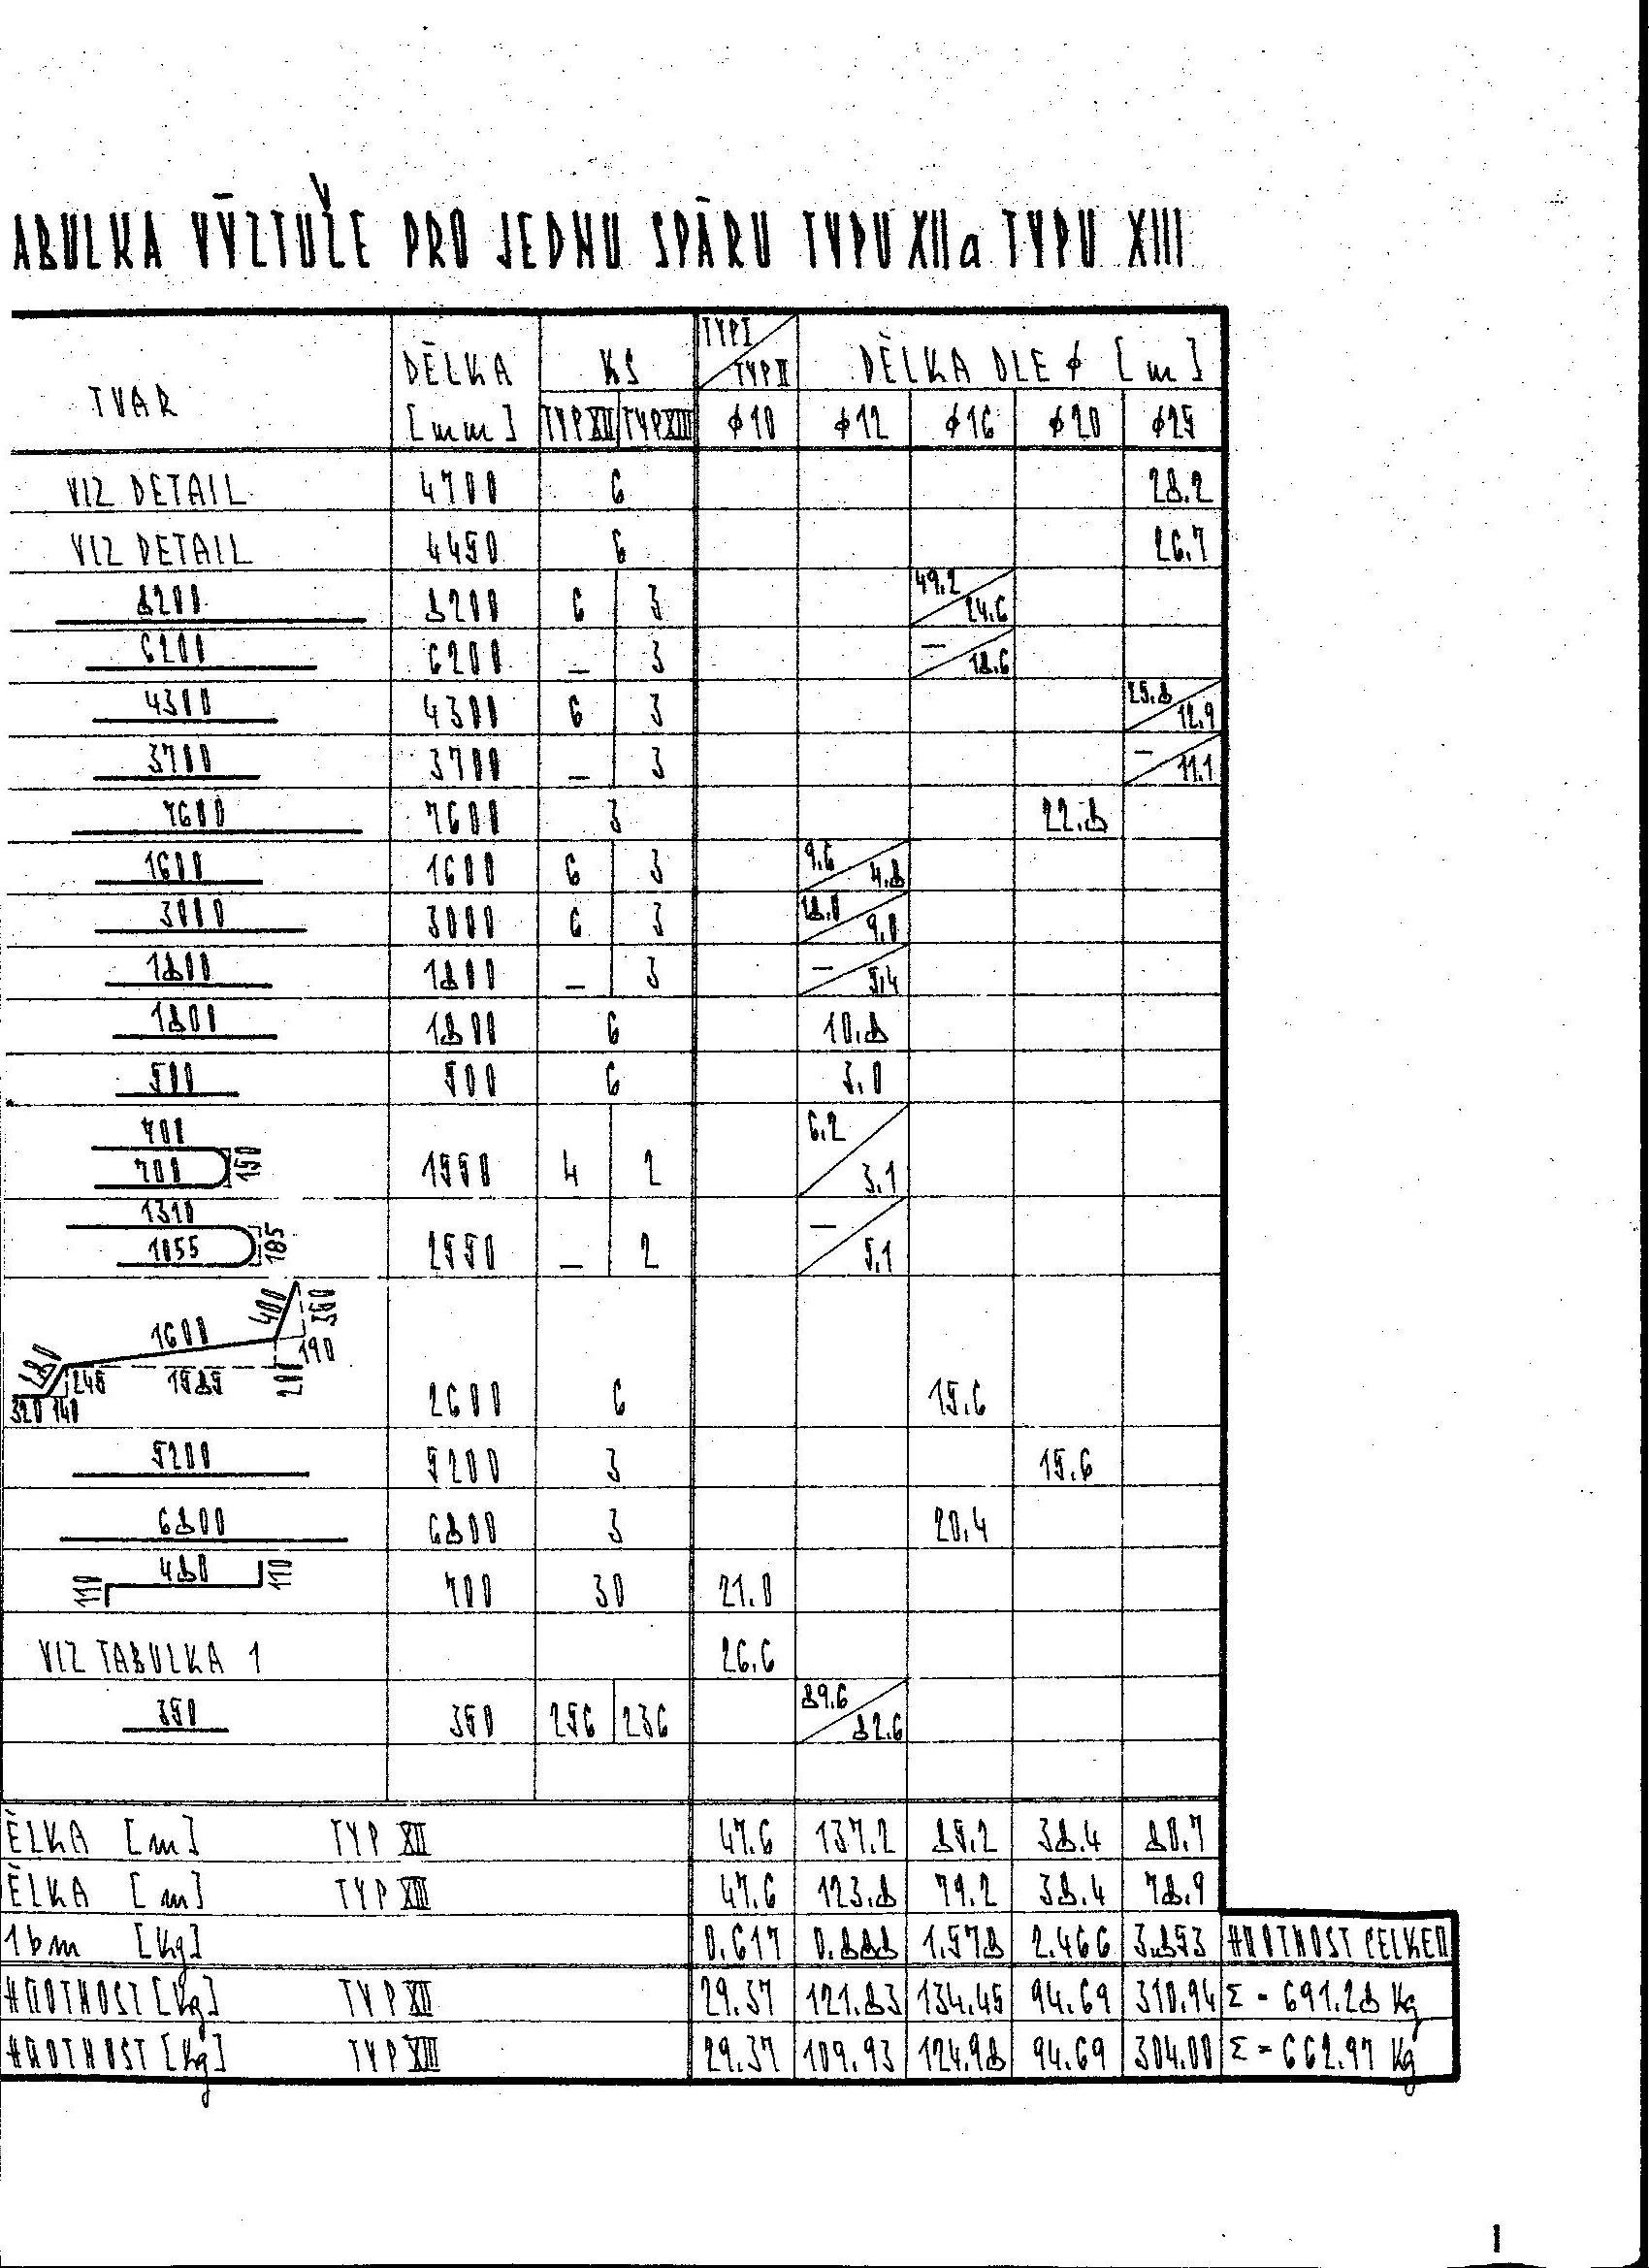 ABULKA VÝZTUŽE PRO JEDNU SPÁRU TYPU XII a TYPU XIII
TVAR DÉLKA [mm] KS TYP I TYP II DÉLKA DLE ϕ [m]
TYP XII TYP XIII ϕ10 ϕ12 ϕ16 ϕ20 ϕ25
VIZ DETAIL 4700 6 28.2
VIZ DETAIL 4450 6 26.7
8200 8200 6 3 49.2 24.6
6200 6200 – 3 – 18.6
4300 4300 6 3 25.8 12.9
3700 3700 – 3 – 11.1
7600 7600 3 22.8
1600 1600 6 3 9.6 4.8
3000 3000 6 3 18.0 9.0
1800 1800 – 3 – 5.4
1800 1800 6 10.8
500 500 6 3.0
700 700 150 1550 4 2 6.2 3.1
1310 1055 185 2550 – 2 – 5.1
320 140 280 245 1600 1585 200 190 400 350 2600 6 15.6
5200 5200 3 15.6
6800 6800 3 20.4
110 480 110 700 30 21.0
VIZ TABULKA 1 26.6
350 350 256 236 89.6 82.6
ÉLKA [m] TYP XII 47.6 137.2 85.2 38.4 80.7
ÉLKA [m] TYP XIII 47.6 123.8 79.2 38.4 78.9
1bm [Kg] 0.617 0.888 1.578 2.466 3.853 HMOTNOST CELKEM
HMOTNOST [Kg] TYP XII 29.37 121.83 134.45 94.69 310.94 Σ = 691.28 Kg
HMOTNOST [Kg] TYP XIII 29.37 109.93 124.98 94.69 304.00 Σ = 662.97 Kg